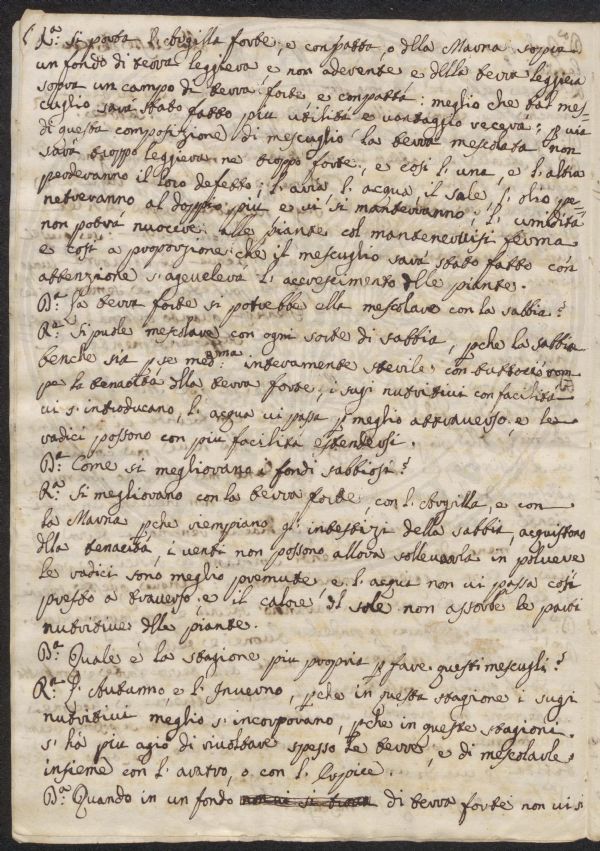 R.ª Si porta l'Argilla forte, e compatta, o della Marna sopra
un fondo di terra leggiera e non aderente e della terra leggiera
sopra un campo di terra forte e compatta: meglio che tal mes-
cuglio sarà stato fatto più utilità e vantaggio recerà:
di questa composizione di mescuglio la terra mescolata non
sarà troppo leggiera ne troppo forte, e così l'una, e l'altra
perderanno il loro defetto; l'aria l'acqua il sale l'olio pe-
netreranno al doppio più e vi si manterranno; l'umidità
non potrà nuocere alle piante col mantenervisi ferma
e così a proporzione che il mescuglio sarà stato fatto con
attenzione s'agevelerà l'accrescimento dlle piante.
D.ª La terra forte si potrebbe ella mescolare con la sabbia?
R.ª Si puole mescolare con ogni sorte di sabbia, pche la sabbia
benche sia p se med.ma interamente sterile con tuttociò rom
pe la tenacità dlla terra forte, i sugi nutritivi con facilità
vi s'introducano, l'acqua vi passa p meglio attraverso, e le
radici possono con più facilità estendersi.
D.ª Come si megliorano i fondi sabbiosi?
R.ª Si megliorano con la terra forte, con l'Argilla, e con
la Marna pche riempiano gl'intestizi della sabbia, acquistano
dlla tenacità, i venti non possono allora sollevarla in polvere
le radici sono meglio premute e l'acqua non vi passa così
presto a traverso, e il calore dl sole non assorbe le parti
nutritive dlle piante.
D.ª Quale è la stagione più propria p fare questi mescugli?
R.ª L'Autunno, e l'Inverno, pche in questa stagione i sugi
nutritivi meglio s'incorporano, pche in queste stagioni
s'ha più agio di rivoltare spesso le terre, e di mescolarle
insieme con l'aratro, o con l'Erpice.
D.ª Quando in un fondo non vi si trova di terra forte non vi si